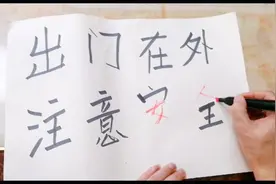 出门在外
注意安全